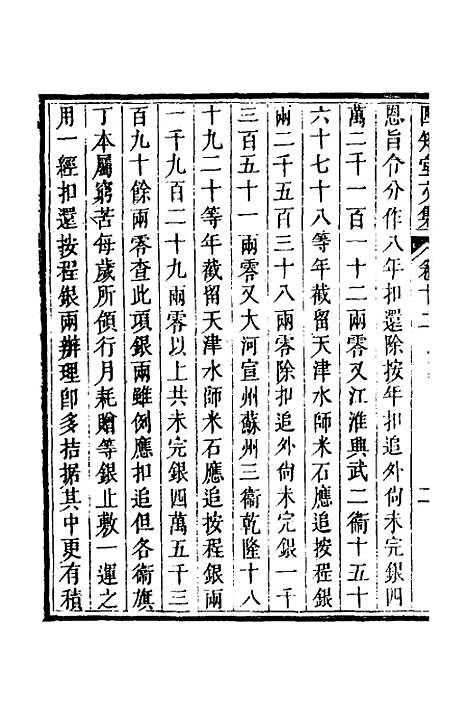 四知堂文集 卷十二
恩旨令分作八年扣還除按年扣追外尙未完銀四
萬二千一百一十二兩零又江淮興武二衞十五十
六十七十八等年截留天津水師米石應追按程銀
兩二千五百三十八兩零除扣追外尙未完銀一千
三百五十一兩零又大河宣州蘇州三衞乾隆十八
十九二十等年截留天津水師米石應追按程銀兩
一千九百二十九兩零以上共未完銀四萬五千三
百九十餘兩零查此項銀兩雖例應扣追但各衞旗
丁本屬窮苦每歲所領行月耗贈等銀止敷一運之
用一經扣還按程銀兩辦理卽多拮据其中更有積